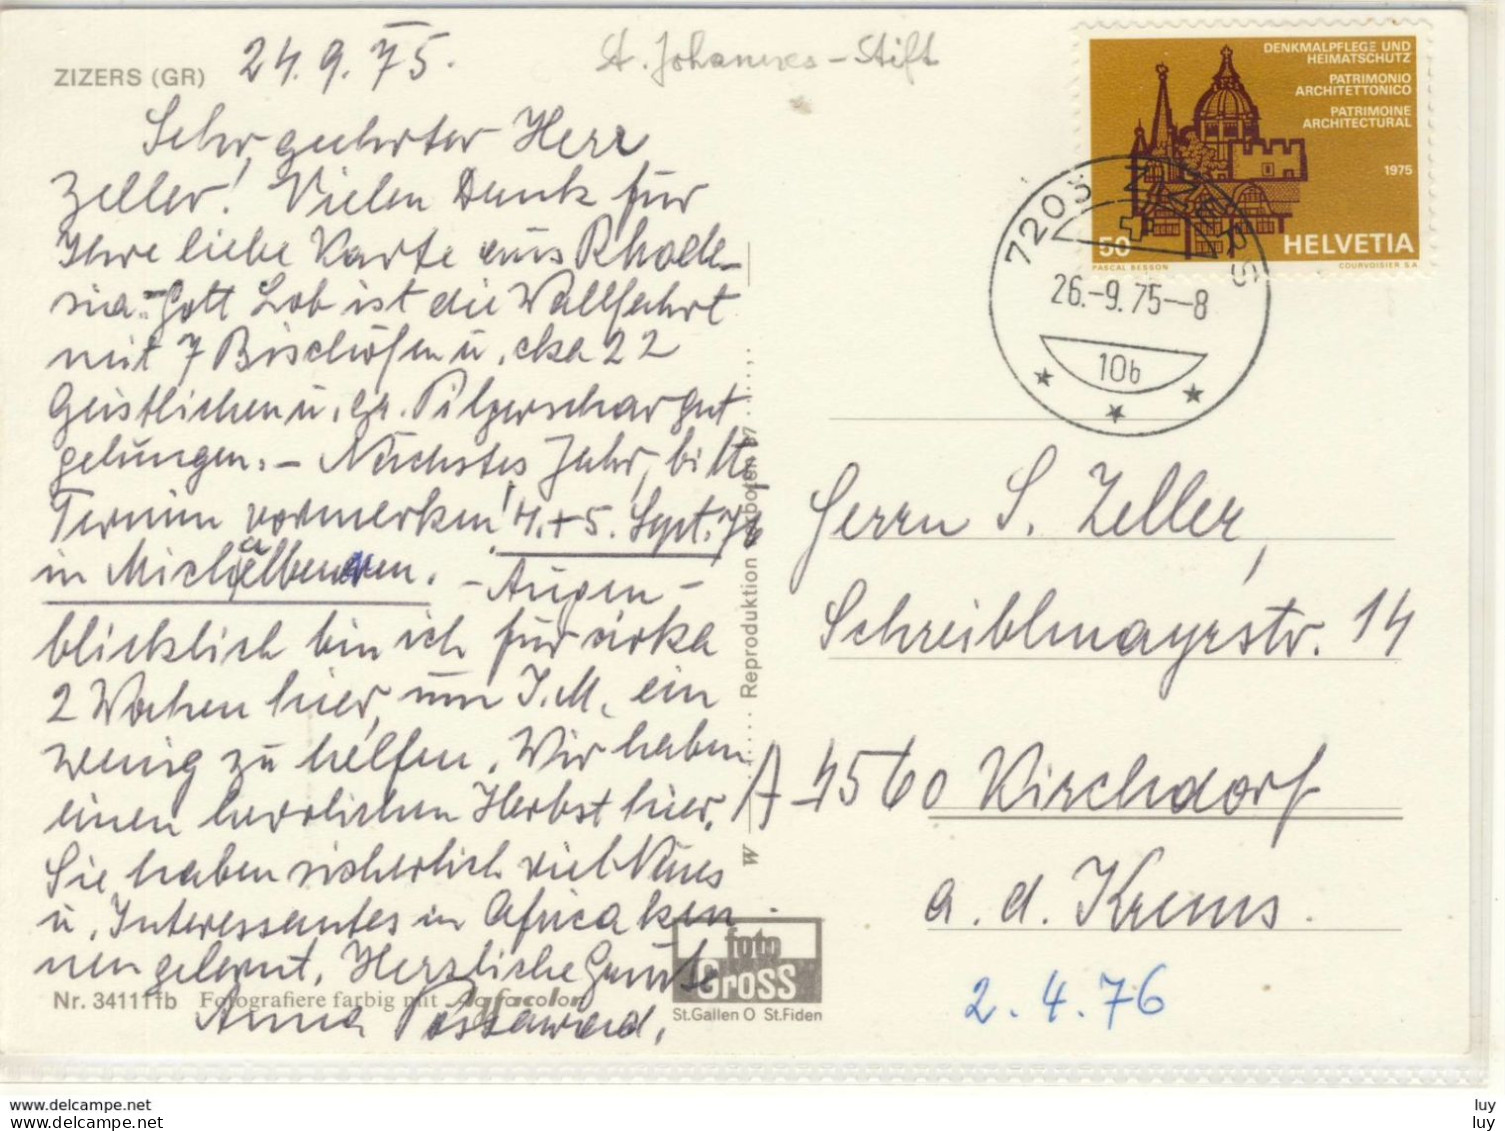 ZIZERS (GR) 24.9.75.
St. Johannes-Stift
Sehr geehrter Herr
Zeller! Vielen Dank für
Ihre liebe Karte aus Rhode-
sia.- Gott Lob ist die Wallfahrt
mit 7 Bischöfen u. cka 22
Geistlichen u. gr. Pilgerschar gut
gelungen.- Nächstes Jahr, bitte
Termin vormerken! 4.+5. Sept. 76
in Michaelbeuern. - Augen-
blicklich bin ich für cirka
2 Wochen hier, um I.M. ein
wenig zu helfen. Wir haben
einen herrlichen Herbst hier.
Sie haben sicherlich viel Neues
u. Interessantes in Africa ken-
nen gelernt. Herzliche Grüsse
Anna
Nr. 341111b Fotografiere farbig mit Agfacolor
W Reproduktion verboten
foto
GROSS
St.Gallen O St.Fiden
DENKMALPFLEGE UND
HEIMATSCHUTZ
PATRIMONIO
ARCHITETTONICO
PATRIMOINE
ARCHITECTURAL
1975
50 HELVETIA
PASCAL BESSON COURVOISIER S.A.
7203 TRIMMIS
26.-9.75-8
10b
Herrn S. Zeller,
Schreiblmayrstr. 14
A-4560 Kirchdorf
a. d. Krems.
2.4.76
www.delcampe.net
www.delcampe.net
luy
luy